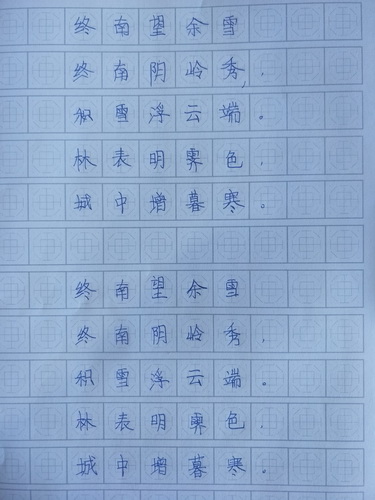 终南望余雪
终南阴岭秀,
积雪浮云端。
林表明霁色,
城中增暮寒。
终南望余雪
终南阴岭秀,
积雪浮云端。
林表明霁色,
城中增暮寒。